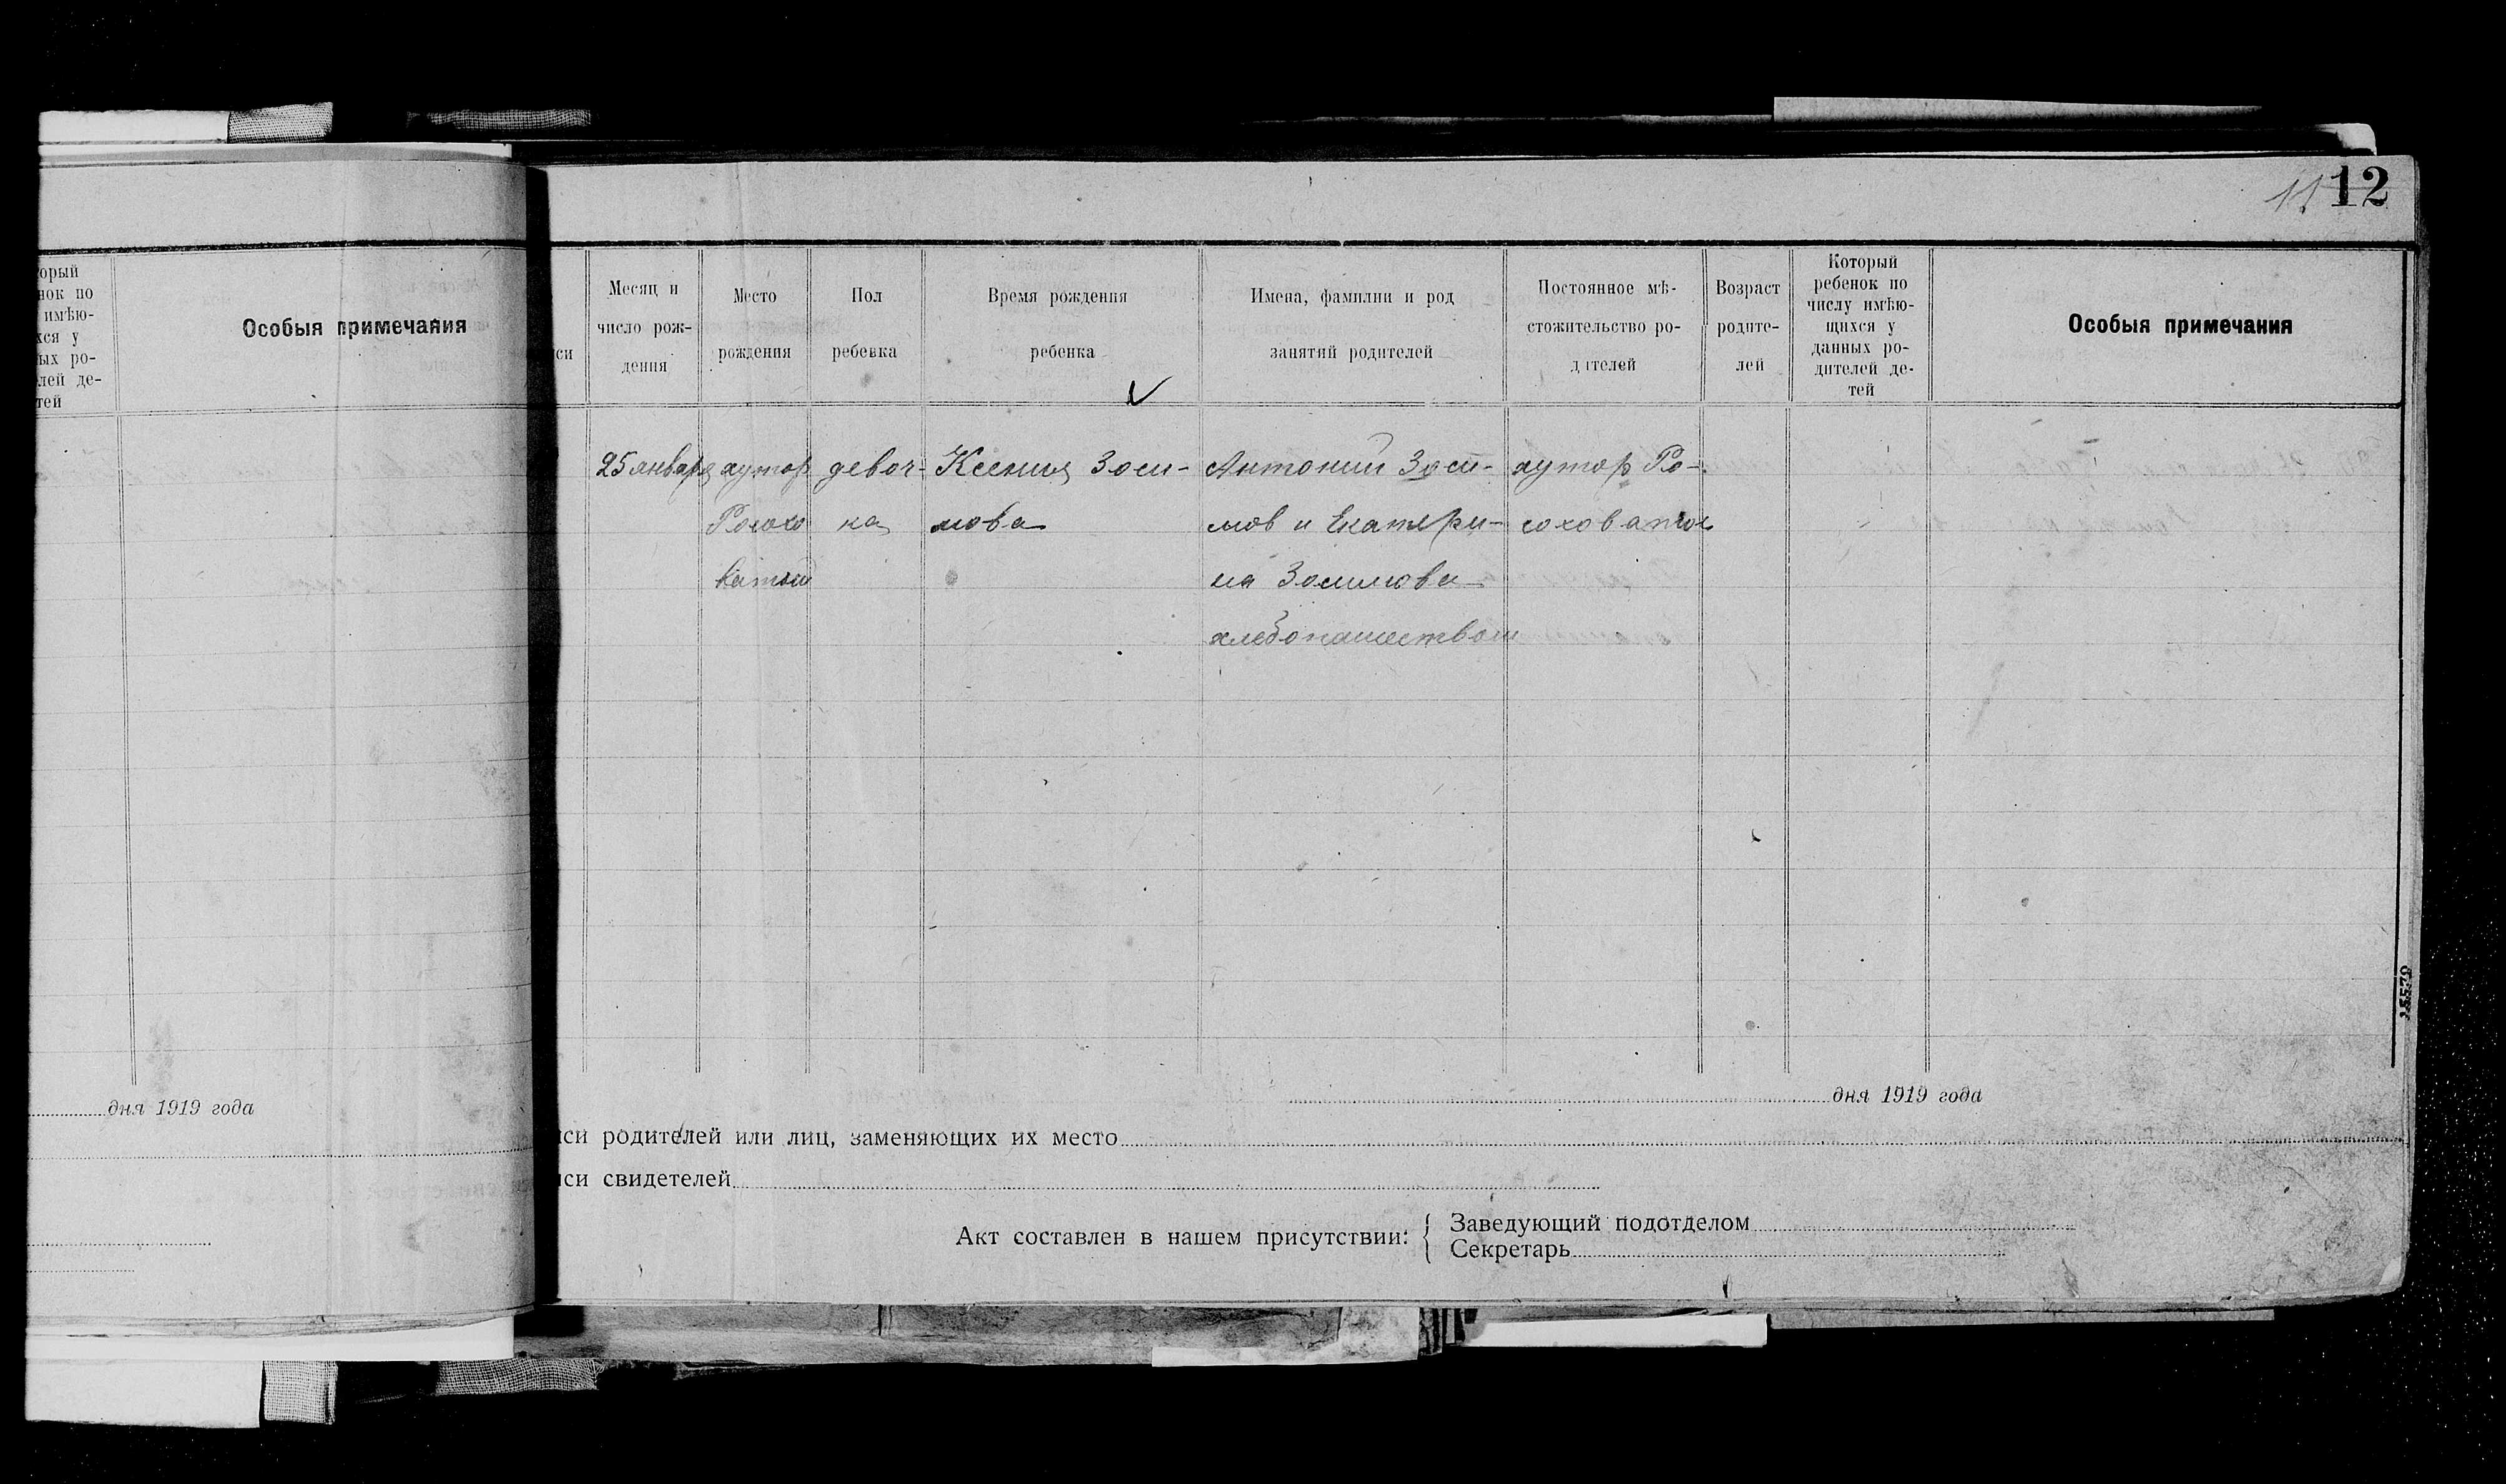 11 12
орый
нок по
имѣю-
хся у
ых ро-
лей де-
тей
Особыя примечания
си
Месяц и
число рож-
дения
Место
рождения
Пол
ребенка
Время рождения
ребенка
Имена, фамилии и род
занятий родителей
Постоянное мѣ-
стожительство ро-
дителей
Возраст
родите-
лей
Который
ребенок по
числу имѣю-
щихся у
данных ро-
дителей де-
тей
Особыя примечания
25 января хутор девоч- Ксения Зоси- Антоний Зоси- хутор Ро-
Росохо ка мова мов и Екатери- соховатой
ватый на Зосимова
хлебопашеством
15570
дня 1919 года
дня 1919 года
си родителей или лиц, заменяющих их место
си свидетелей
Акт составлен в нашем присутствии:
Заведующий подотделом
Секретарь